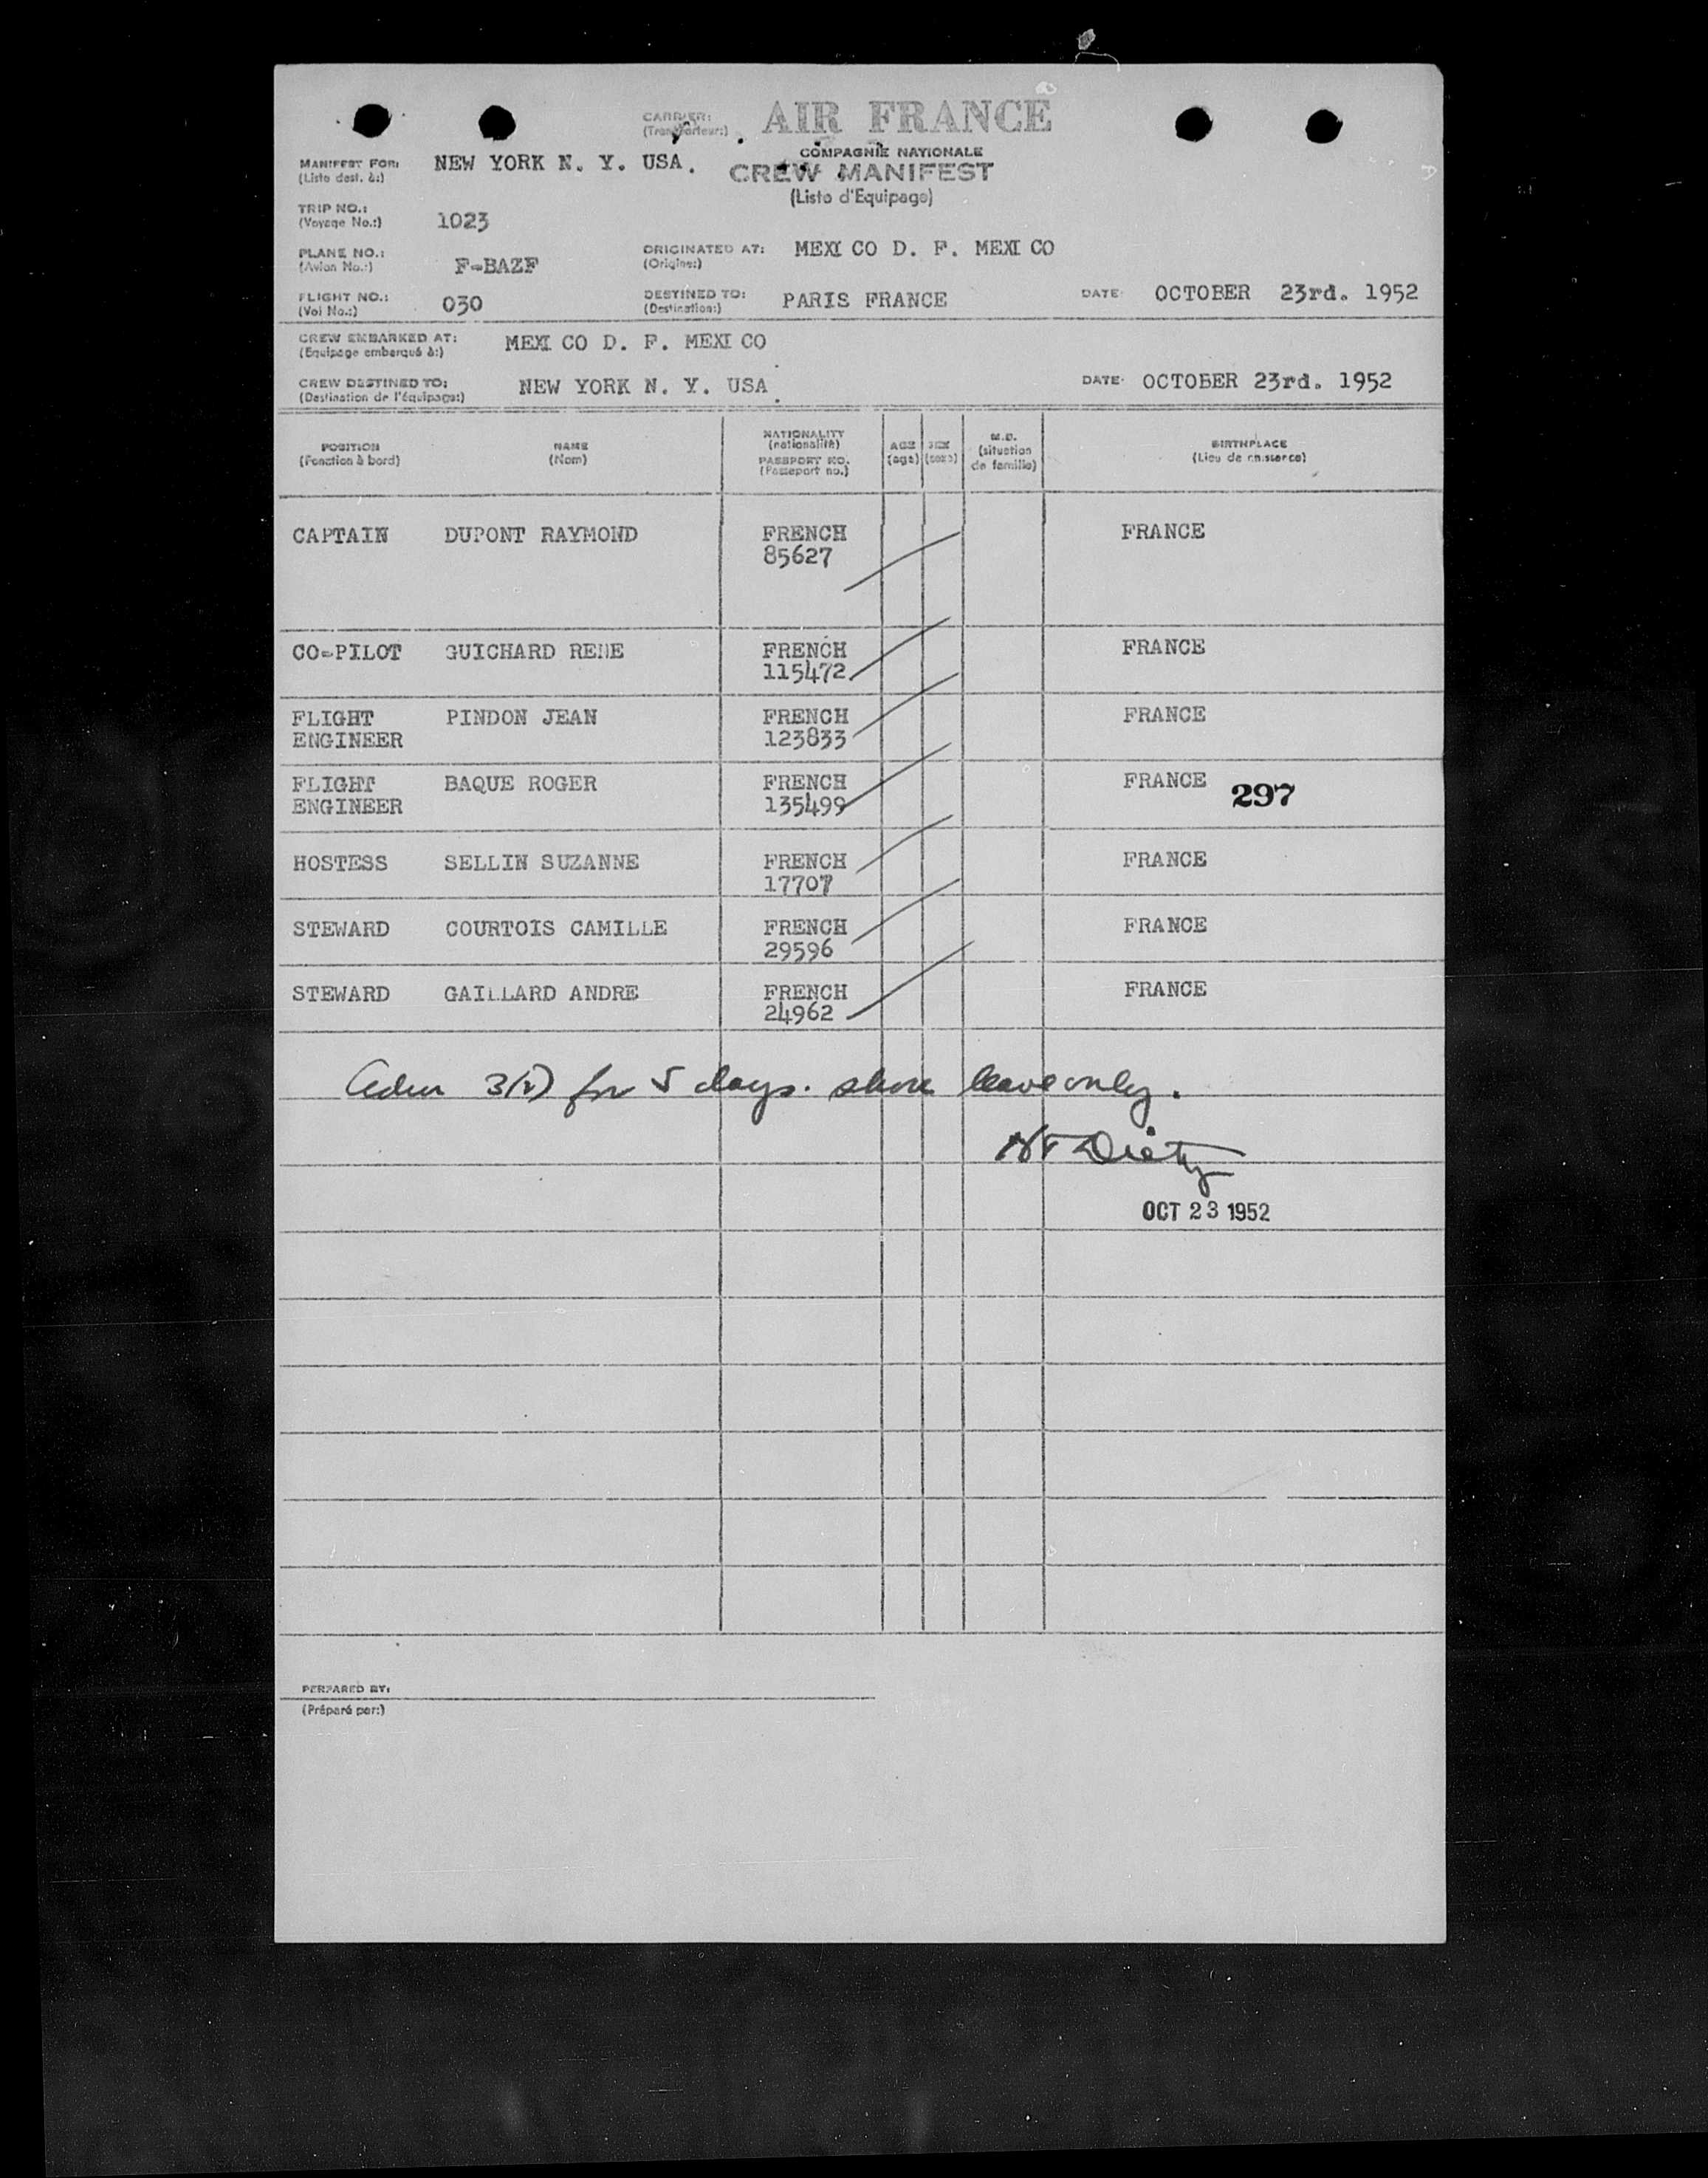 CARRIER: AIR FRANCE
(Transporteur:)
COMPAGNIE NATIONALE
MANIFEST FOR: NEW YORK N. Y. USA. CREW MANIFEST
(Liste dest. à:) (Liste d'Equipage)
TRIP NO.: 1023
(Voyage No.:)
PLANE NO.: F-BAZF ORIGINATED AT: MEXICO D. F. MEXICO
(Avion No.:) (Origine:)
FLIGHT NO.: 030 DESTINED TO: PARIS FRANCE DATE: OCTOBER 23rd. 1952
(Vol No.:) (Destination:)
CREW EMBARKED AT: MEXICO D. F. MEXICO
(Equipage embarqué à:)
CREW DESTINED TO: NEW YORK N. Y. USA. DATE: OCTOBER 23rd. 1952
(Destination de l'équipage:)
POSITION NAME NATIONALITY AGE SEX M.D. BIRTHPLACE
(Fonction à bord) (Nom) (nationalité) (age) (sexe) (situation de famille) (Lieu de naissance)
PASSPORT NO.
(Passeport no.)
CAPTAIN DUPONT RAYMOND FRENCH FRANCE
85627
CO-PILOT GUICHARD RENE FRENCH FRANCE
115472
FLIGHT PINDON JEAN FRENCH FRANCE
ENGINEER 123833
FLIGHT BAQUE ROGER FRENCH FRANCE 297
ENGINEER 135499
HOSTESS SELLIN SUZANNE FRENCH FRANCE
17707
STEWARD COURTOIS CAMILLE FRENCH FRANCE
29596
STEWARD GAILLARD ANDRE FRENCH FRANCE
24962
for 5 days. shore leave only.
OCT 23 1952
PERPARED BY:
(Préparé par:)